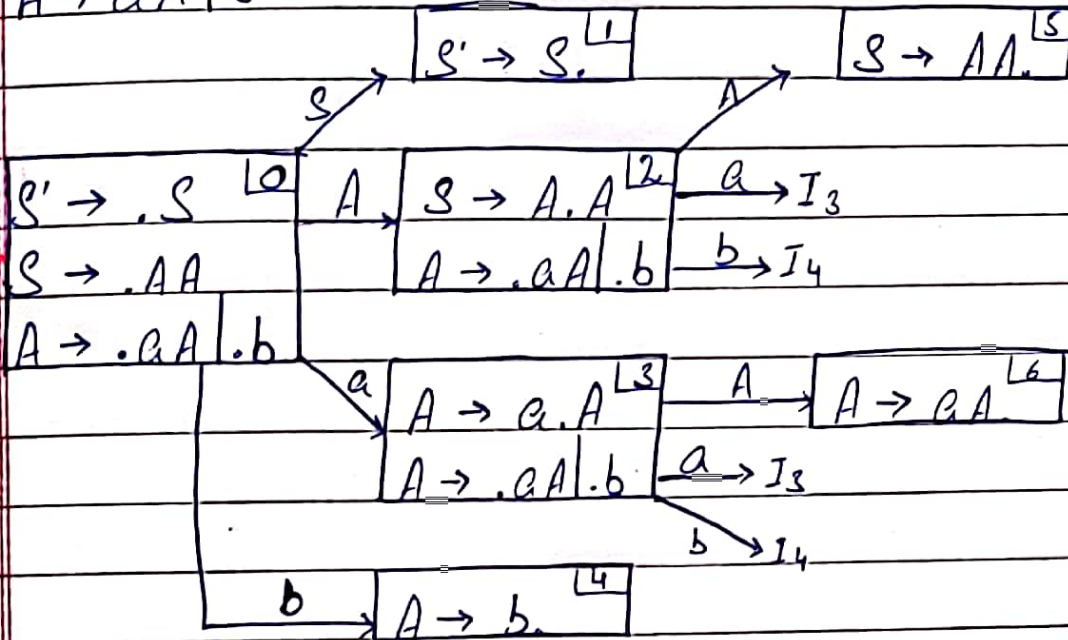 S' → S. 1
S → AA. 5
S
A
S' → .S 0
S → .AA
A → .aA|.b
A
S → A.A 2
A → .aA|.b
a → I3
b → I4
a
A → a.A 3
A → .aA|.b
A
A → aA 6
a → I3
b → I4
b
A → b. 4